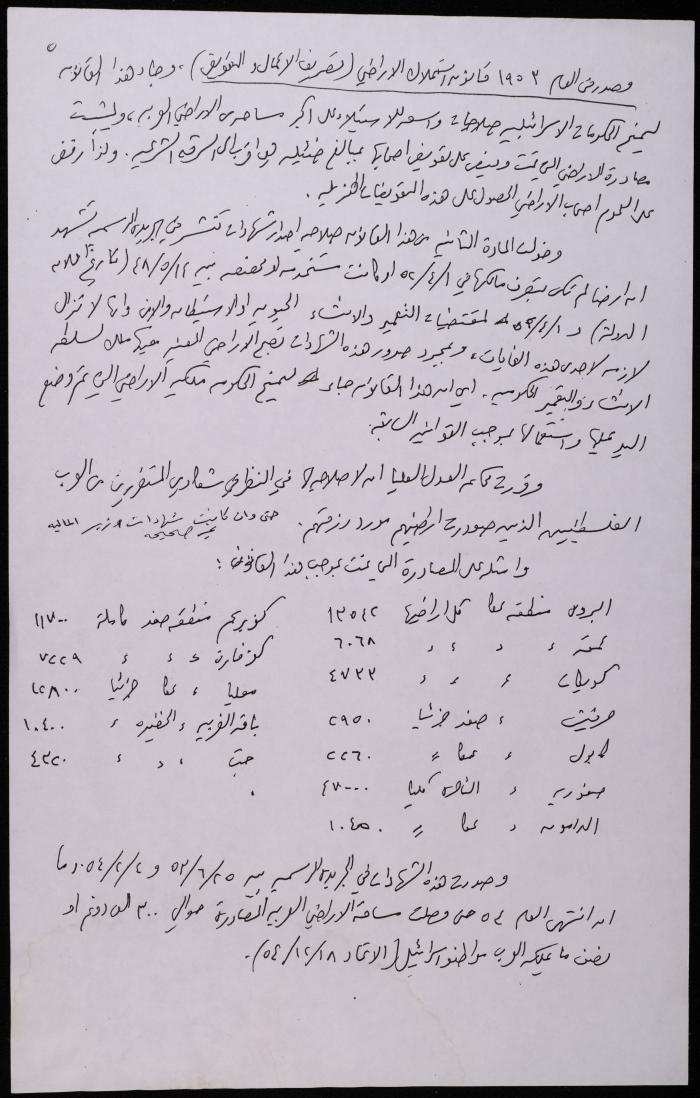 ٥
وصدر في العام ١٩٥٣ قانون استملاك الاراضي (تصريف الاعمال والتعويض)، وجاء هذا القانون
ليمنح الحكومات الاسرائيلية صلاحيات واسعة للاستيلاء على اكبر مساحة من الاراضي العربية، وليثبت
مصادرة الاراضي التي تمت وينص على تعويض اصحابها بمبالغ ضئيلة هي اقرب الى السرقة الشرعية. ولذا رفض
على العموم اصحاب الاراضي الحصول على هذه التعويضات الهزيلة.
وخولت المادة الثانية من هذا القانون صلاحية اصدار شهادات تنشر في الجريدة الرسمية تشهد
ان ارضا لم تكن بتصرف مالكها في ٥٢/٤/١ او كانت مستخدمة او مخصصة بين ٤٨/٥/١٤ (تاريخ اعلان
الدولة) و ٥٢/٤/١ لمقتضيات التعمير والانشاء الحيوية او الاستيطان والامن وانها لا تزال
لازمة لاحدى هذه الغايات، وبمجرد صدور هذه الشهادات تصبح الاراضي المعنية فيها ملك لسلطة
الانشاء والتعمير الحكومية. اي ان هذا القانون جاء ليمنح الحكومة ملكية الاراضي التي تم وضع
اليد عليها واستعمالها بموجب القوانين السابقة.
وقررت محكمة العدل العليا ان لا صلاحية لها في النظر في شكاوى المتضررين من العرب
الفلسطينيين الذين صودرت اراضيهم مورد رزقهم. حتى وان كانت شهادات وزير المالية
غير صحيحة
وامثلة على المصادرة التي تمت بموجب هذا القانون:
البروة منطقة عكا كل اراضيها ١٣٥٤٢ كفر برعم منطقة صفد كاملة ١١٧٠٠
عمقة ، ، ، ٦٠٦٨ ، ، ، ٧٢٢٩
كويكات ، ، ، ٤٧٢٣ معليا ، عكا جزئيا ١٢٨٠٠
، صفد جزئيا ٢٩٥٠ باقة الغربية ، الخضيرة ، ١٠٤٠٠
كابول ، عكا = ٢٢٦٠ جت ، ، ، ٤٣٢٠
صفورية ، الناصرة كليا ٤٧٠٠٠
الدامون ، عكا = ١٠٤٥٠
وصدرت هذه الشهادات في الجريدة الرسمية بين ٥٣/٦/٢٥ و ٥٤/٢/٢. وما
ان انتهى العام ٥٤ حتى وصلت مساحة الاراضي العربية المصادرة حوالي ٣٠٠ الف دونم او
نصف ما يملكه العرب مواطنو اسرائيل (الاتحاد ٥٤/١٢/١٨).